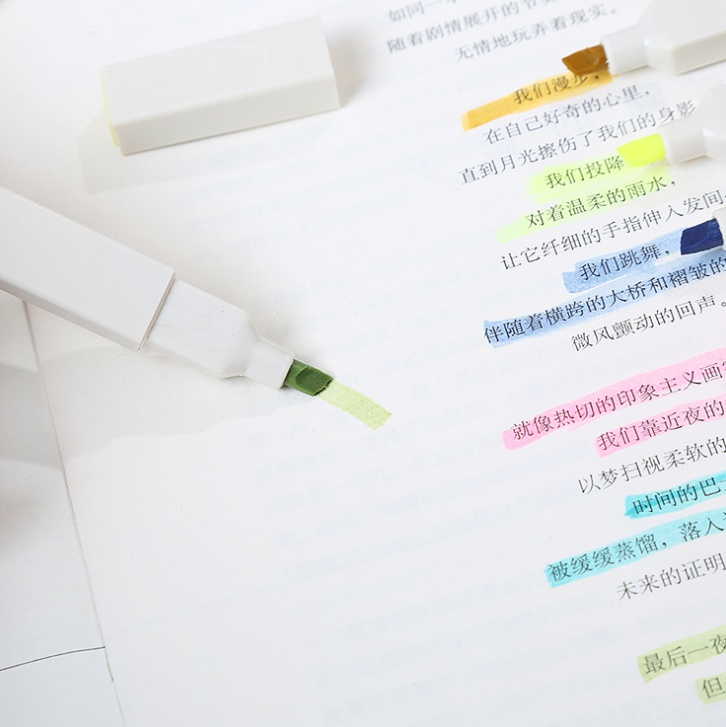 如同一
随着剧情展开的节
无情地玩弄着现实。
我们漫步，
在自己好奇的心里，
直到月光擦伤了我们的身影
我们投降
对着温柔的雨水，
让它纤细的手指伸入发间
我们跳舞，
伴随着横跨的大桥和褶皱的
微风颤动的回声
就像热切的印象主义画
我们靠近夜的
以梦扫视柔软的
时间的巴
被缓缓蒸馏，落入
未来的证明
最后一夜
但